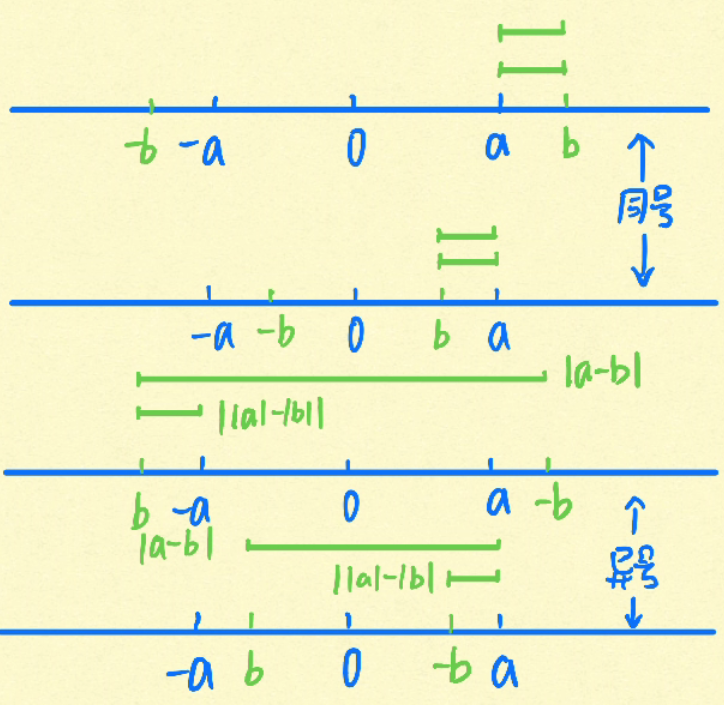 -b -a 0 a b
同号
-a -b 0 b a
|a-b|
||a|-|b||
b -a 0 a -b
|a-b|
异号
||a|-|b|
-a b 0 -b a